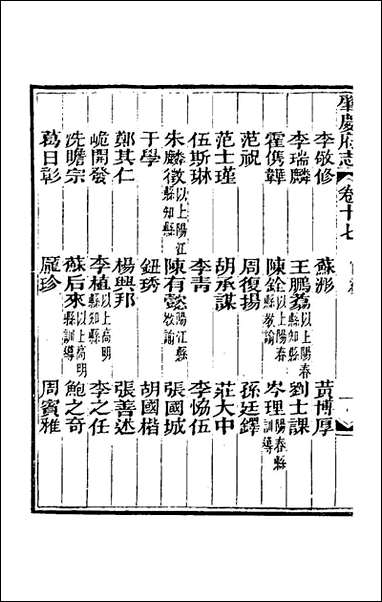 肇慶府志 卷十七
李敬修 蘇浵 黃博厚
李瑞麟 王鵬荔以上陽春縣知縣 劉士課
霍儁韡 陳銓以上陽春縣教諭 岑理陽春縣訓導
范祝 周復揚 孫廷鐸
范士瑾 胡承謀 莊大中
伍斯琳 李青 李恊伍
朱麟徵以上陽江縣知縣 陳有懿陽江縣教諭 張國城
于學 鈕琇 胡國楷
鄭其仁 楊興邦 張善述
峗開發 李植以上高明縣知縣 李之任
冼瞻宗 蘇后來以上高明縣訓導 鮑之奇
葛日彰 龐珍 周賓雅